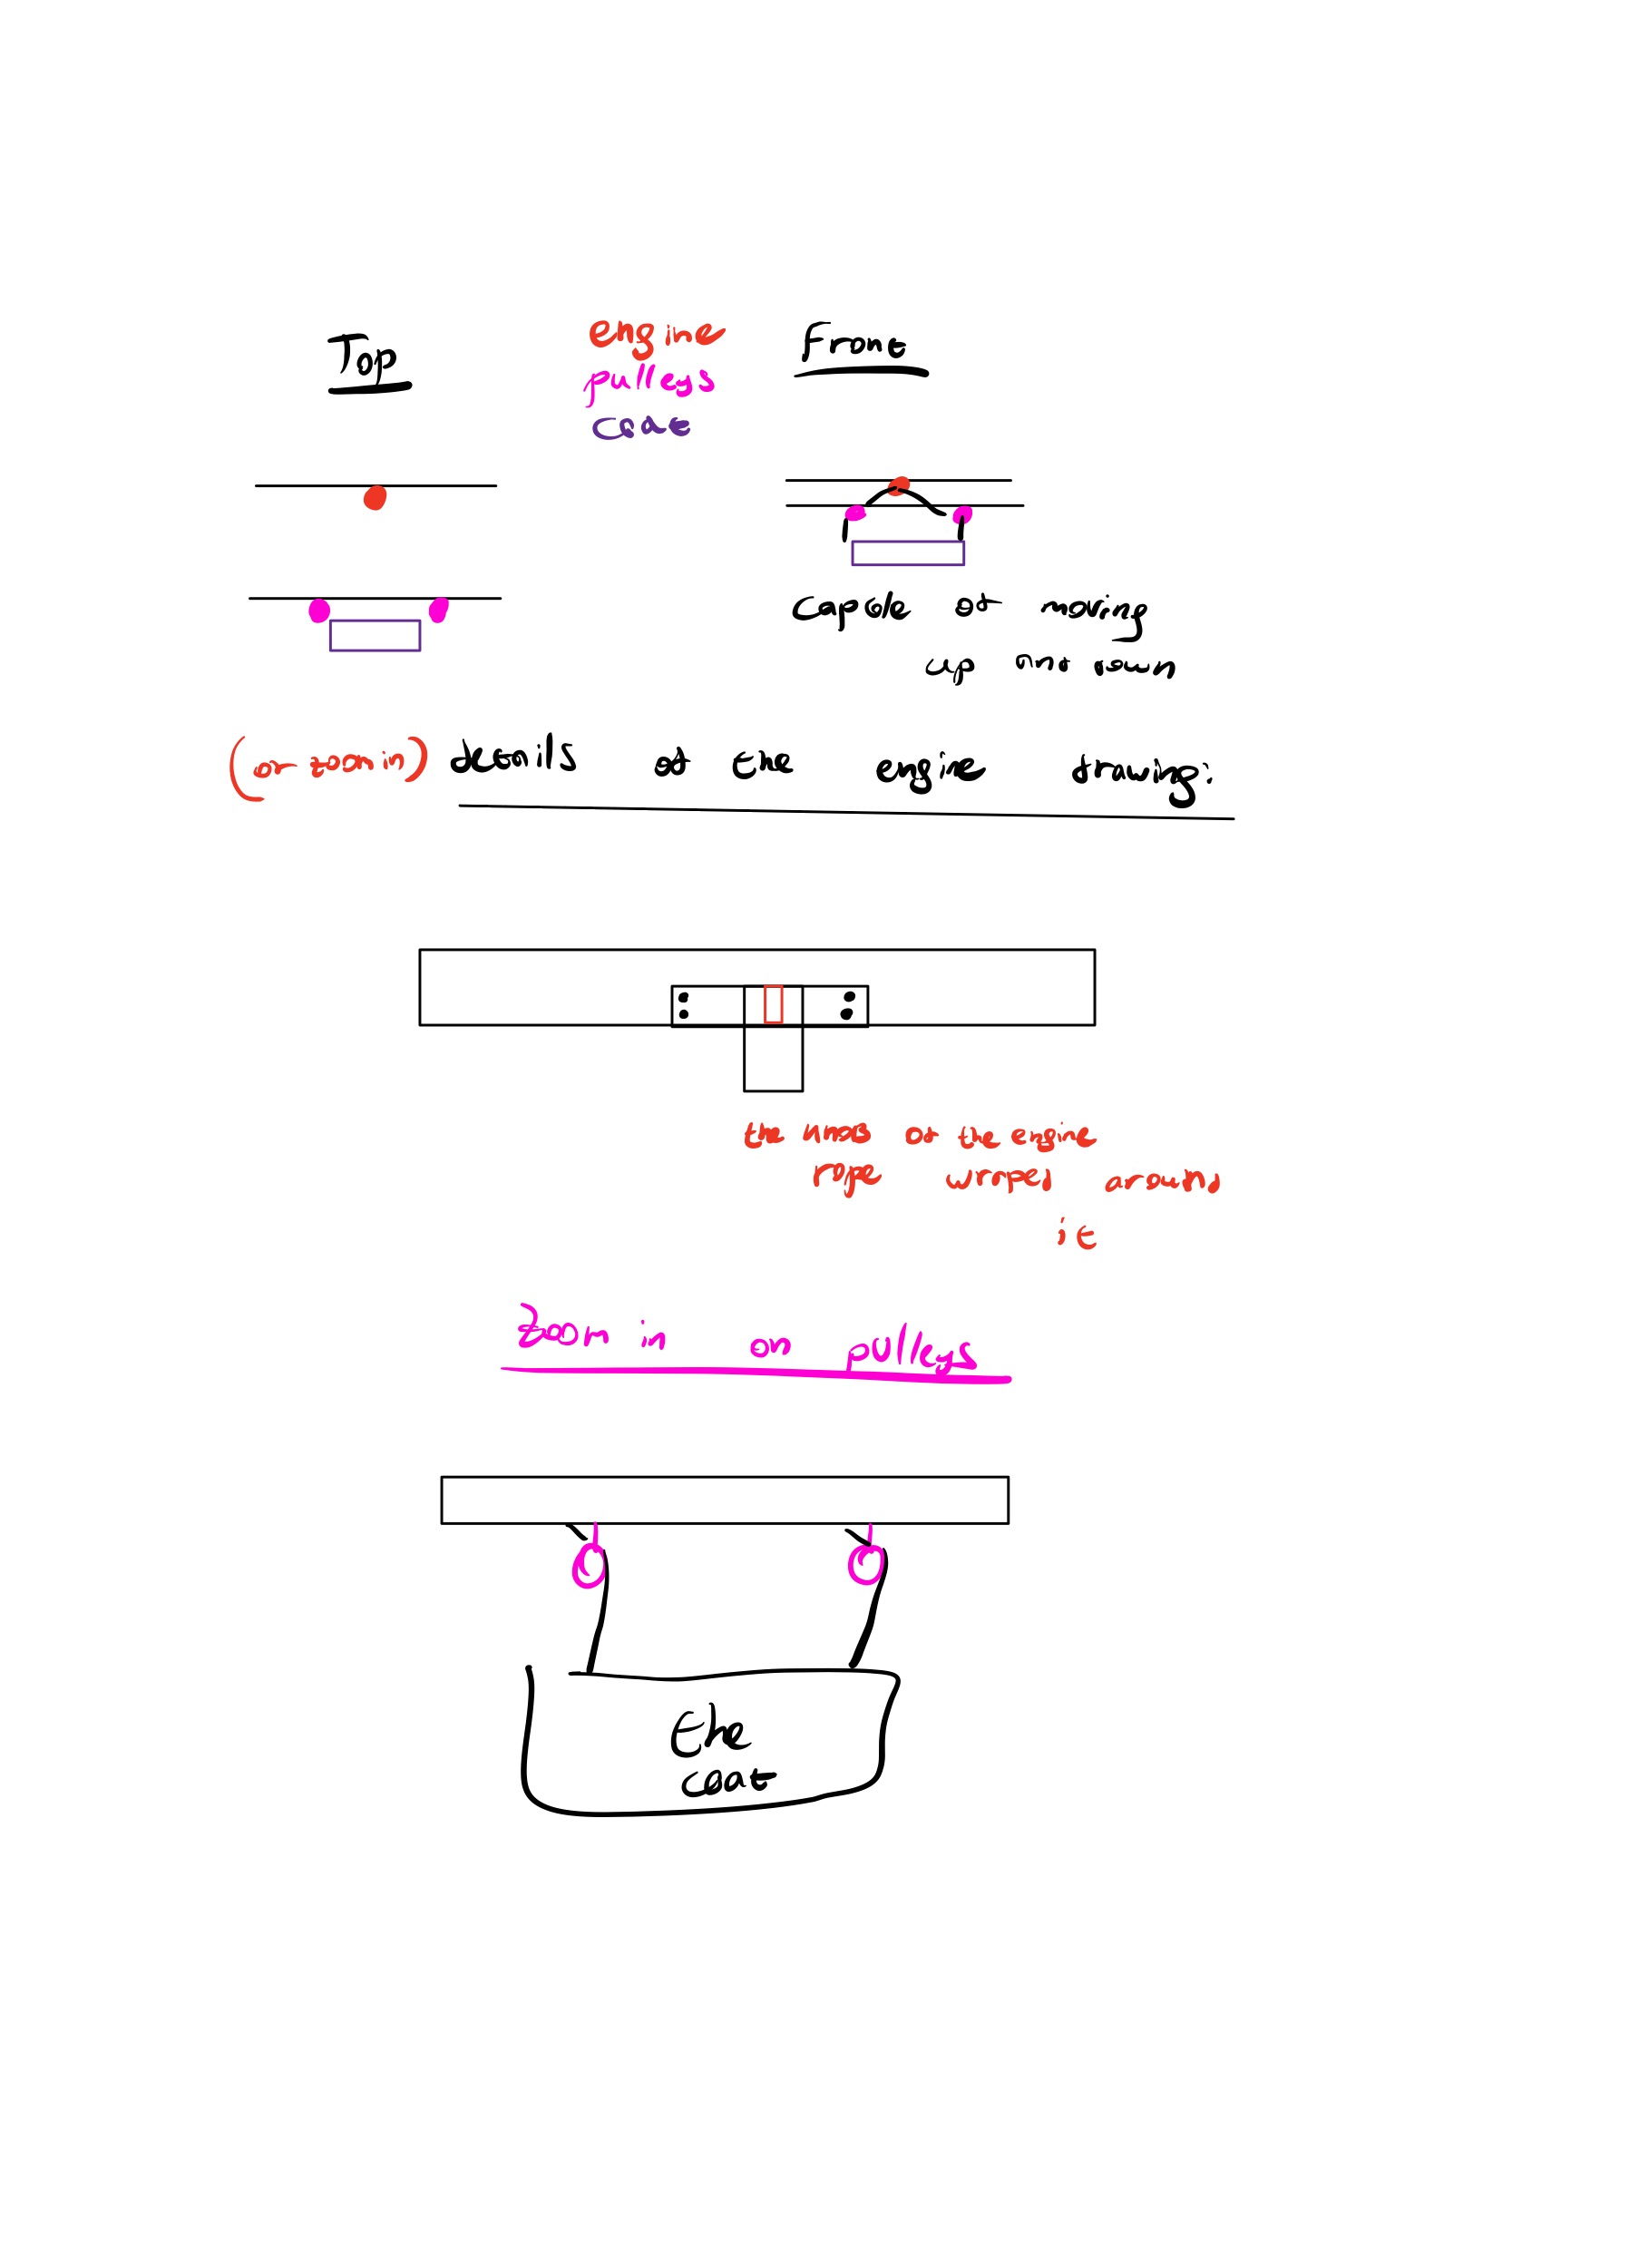 Top
engine
pulleys
coat
Front
capable of moving
up and down
(or zoom in) details of the engine drawing:
the of the engine
rope wraped around
it
Zoom in on pulleys
the
coat